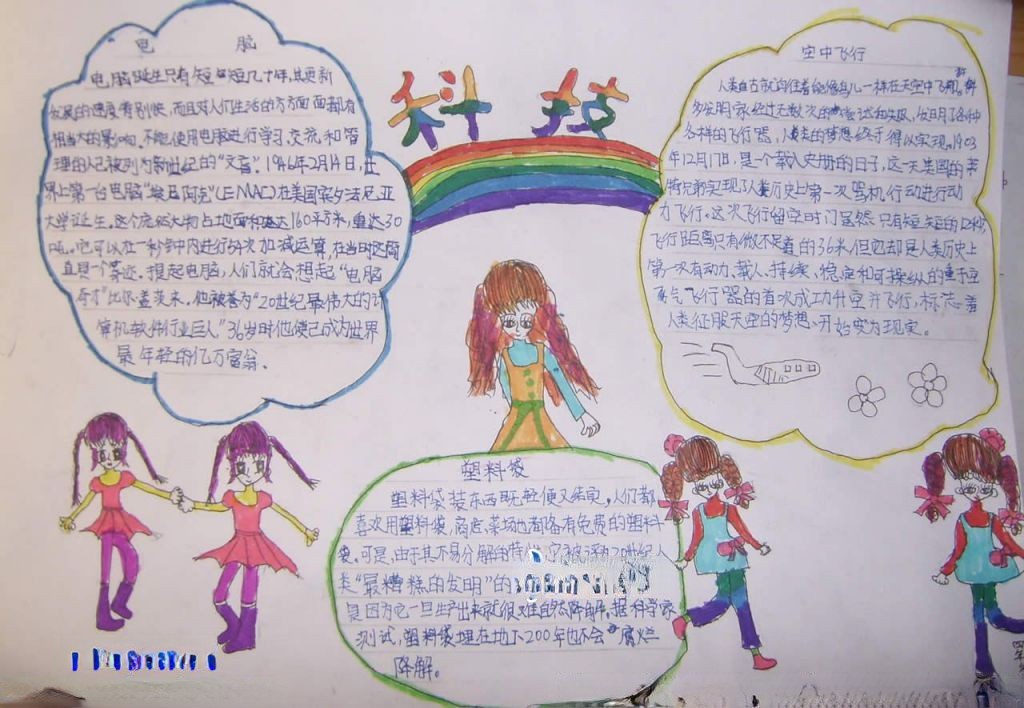 科技
电脑
电脑诞生只有短短几十年,其更新
发展的速度特别快,而且对人们生活的方方面面都有
相当大的影响,不能使用电脑进行学习、交流和管
理的人已被列为新世纪的“文盲”。1946年2月14日,世
界上第一台电脑“埃尼阿克”(ENIAC)在美国宾夕法尼亚
大学诞生。这个庞然大物占地面积达160平方米,重达30
吨。它可以在一秒钟内进行5千次加减运算,在当时这简
直是一个奇迹。提起电脑,人们就会想起“电脑
奇才”比尔·盖茨来。他被誉为“20世纪最伟大的计
算机软件行业巨人”36岁时他便已成为世界
最年轻的亿万富翁。
空中飞行
人类自古就向往着能像鸟儿一样在天空中飞翔。许
多发明家经过无数次的尝试和失败,发明了各种
各样的飞行器,人类的梦想终于得以实现。1903
年12月17日,是一个载入史册的日子,这一天美国的莱
特兄弟实现了人类历史上第一次
力飞行。这次飞行留空时间虽然只有短短的12秒,
飞行距离只有微不足道的36米,但它却是人类历史上
第一次有动力、载人、持续、稳定和可操纵的重于空
气飞行器的首次成功升空并飞行,标志着
人类征服天空的梦想开始变为现实。
塑料袋
塑料袋装东西既轻便又结实,人们都
喜欢用塑料袋,商店、菜场也都备有免费的塑料
袋。可是,由于其不易分解的特性,它被评为20世纪人
类“最糟糕的发明”的
是因为它一旦生产出来就很难自然降解。据科学家
测试,塑料袋埋在地下200年也不会腐烂
降解。
四
年